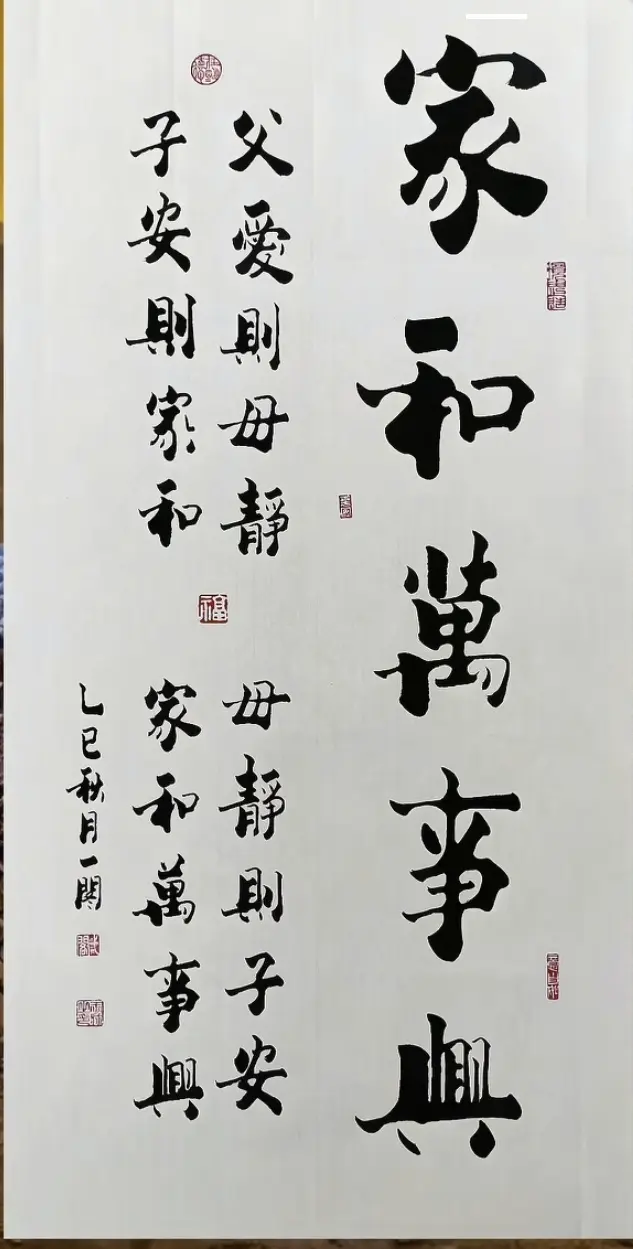 家和萬事興
父愛則母靜
母靜則子安
子安則家和
家和萬事興
乙巳秋月一閣
福